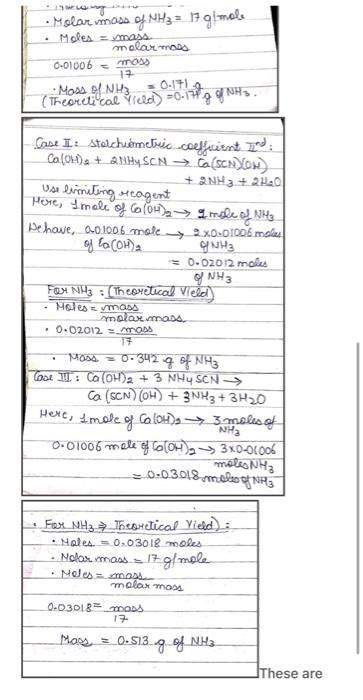 • Molar mass of NH3 = 17 g/mole
• Moles = mass
molar mass
0.01006 = mass
17
• Mass of NH3 = 0.171 g
(Theoretical Yield) = 0.171 g of NH3.
Case II: Stoichiometric coefficient IInd:
Ca(OH)2 + 2NH4SCN → Ca(SCN)(OH)
+ 2NH3 + 2H2O
Use limiting reagent
Here, 1 mole of Ca(OH)2 → 2 mole of NH3
We have, 0.01006 mole → 2 x 0.01006 moles
of Ca(OH)2 of NH3
= 0.02012 moles
of NH3
For NH3 : (Theoretical Yield)
• Moles = mass
molar mass
• 0.02012 = mass
17
• Mass = 0.342 g of NH3
Case III: Ca(OH)2 + 3 NH4SCN →
Ca(SCN)(OH) + 3NH3 + 3H2O
Here, 1 mole of Ca(OH)2 → 3 moles of
NH3
0.01006 mole of Ca(OH)2 → 3x0.01006
moles NH3
= 0.03018 moles of NH3
• For NH3 ⇒ Theoretical Yield) :
• Moles = 0.03018 moles
• Molar mass = 17 g/mole
• Moles = mass
molar mass
0.03018 = mass
17
Mass = 0.513 g of NH3
These are